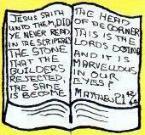 JESUS SAITH
UNTO THEM, DID
YE NEVER READ
IN THE SCRIPTURES
THE STONE
THAT THE
BUILDERS
REJECTED,
THE SAME
IS BECOME
THE HEAD
OF THE CORNER
THIS IS THE
LORDS DOING
AND IT IS
MARVELLOUS
IN OUR
EYES?
MATTHEW 21
42